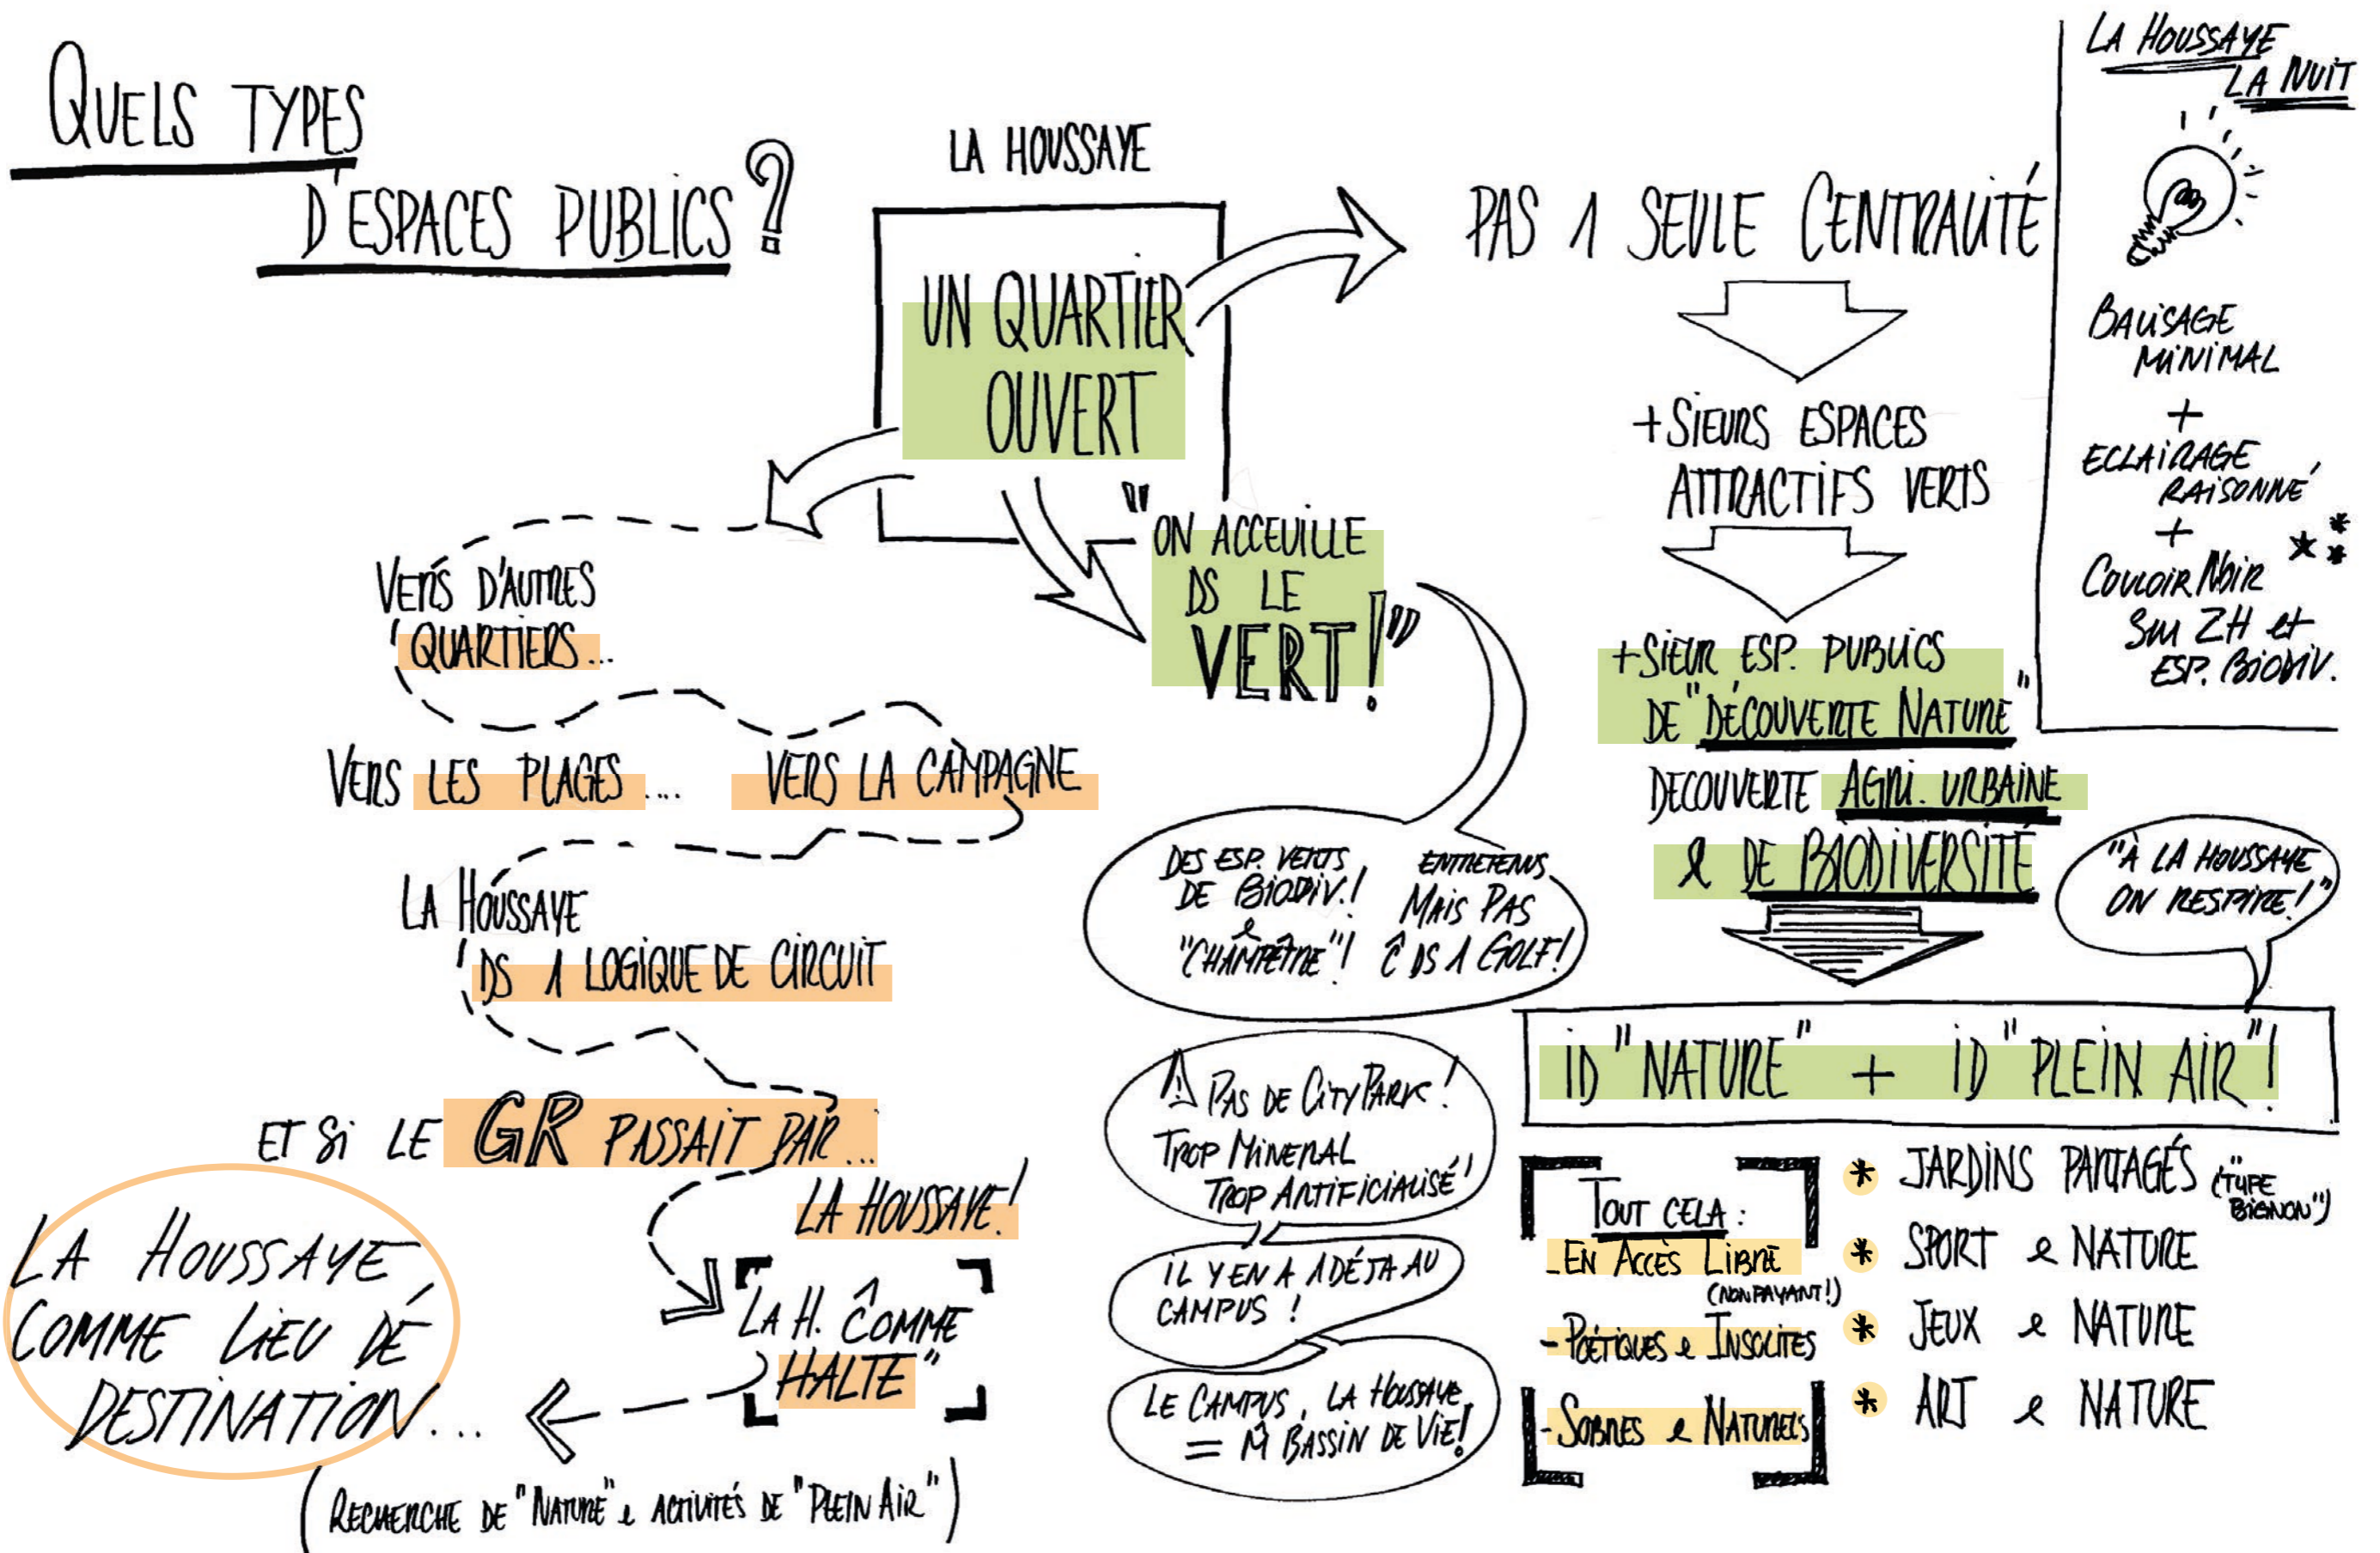 QUELS TYPES
D'ESPACES PUBLICS ?
LA HOUSSAYE
UN QUARTIER
OUVERT
"ON ACCEUILLE
DS LE
VERT!"
VERS D'AUTRES
QUARTIERS...
VERS LES PLAGES.... VERS LA CAMPAGNE
LA HOUSSAYE
DS 1 LOGIQUE DE CIRCUIT
ET SI LE GR PASSAIT PAR...
LA HOUSSAYE!
"LA H. COMME
HALTE"
LA HOUSSAYE
COMME LIEU DE
DESTINATION...
(RECHERCHE DE "NATURE" & ACTIVITÉS DE "PLEIN AIR")
DES ESP. VERTS
DE BIODIV.!
&
"CHAMPÊTRE"!
ENTRETENUS
MAIS PAS
Ĉ DS 1 GOLF!
⚠ PAS DE CITY PARK!
TROP MINERAL
TROP ARTIFICIALISÉ!
IL Y EN A 1 DÉJÀ AU
CAMPUS !
LE CAMPUS, LA HOUSSAYE
= M̂ BASSIN DE VIE!
PAS 1 SEULE CENTRALITÉ
+SIEURS ESPACES
ATTRACTIFS VERTS
+SIEUR ESP. PUBLICS
DE "DÉCOUVERTE NATURE"
DECOUVERTE AGRI. URBAINE
& DE BIODIVERSITÉ
"À LA HOUSSAYE
ON RESPIRE!"
ID "NATURE" + ID "PLEIN AIR"!
TOUT CELA :
- EN ACCÈS LIBRE
(NON PAYANT!)
- POÉTIQUES & INSOLITES
- SOBRES & NATURELS
* JARDINS PARTAGÉS (TYPE
"BIGNON")
* SPORT & NATURE
* JEUX & NATURE
* ART & NATURE
LA HOUSSAYE
LA NUIT
BALISAGE
MINIMAL
+
ECLAIRAGE
RAISONNÉ
+
COULOIR NOIR
SUR ZH et
ESP. BIODIV.